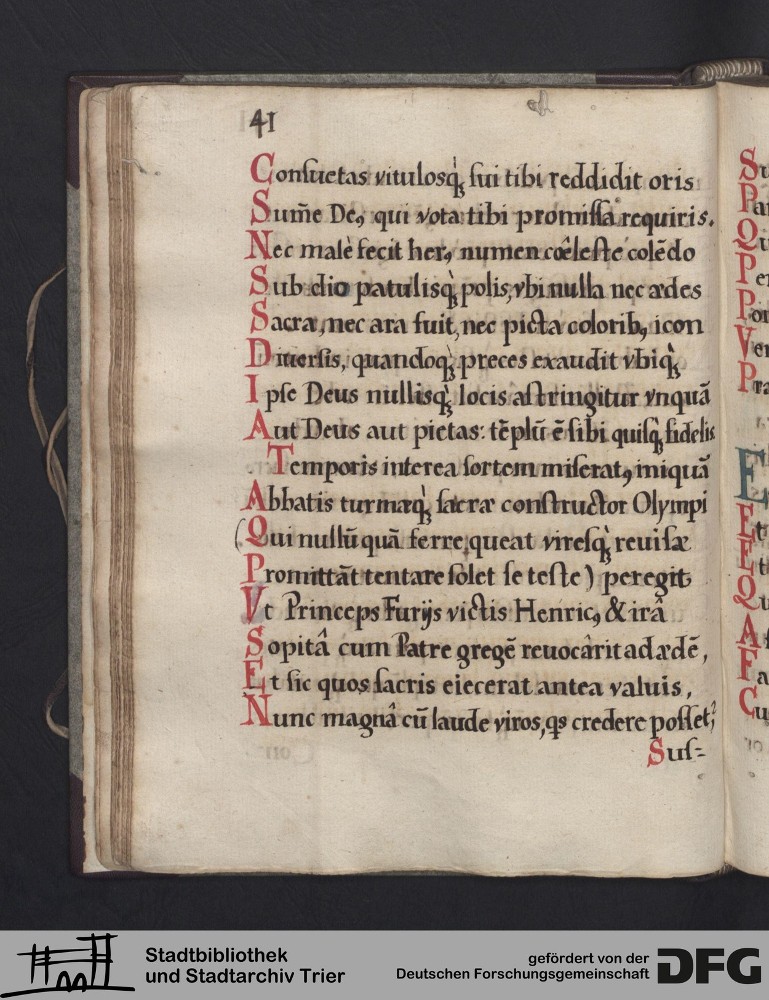 41
Consuetas vitulosq̀; sui tibi reddidit oris
Sum̄e De9, qui vota tibi promissa requiris.
Nec malè fecit her9, numen cœ̂leste colēdo
Sub dio patulisq̀; polis, vbi nulla nec ædes
Sacra, nec ara fuit, nec picta colorib9 icon
Diuersis, quandoq̀; preces exaudit vbiq̀;
Ipse Deus nullisq̀; locis astringitur vnquā
Aut Deus aut pietas: tēplū ē sibi quisq̀; fidelis
Temporis interea sortem miserat9 iniquā
Abbatis turmæq̀; sacræ constructor Olympi
(Qui nullū quā ferre queat viresq̀; reuisæ
Promittāt tentare solet se teste) peregit
Vt Princeps Furijs victis Henric9 & irâ
Sopitâ cum Patre gregē reuocârit ad ædē,
Et sic quos sacris eiecerat antea valuis,
Nunc magnâ cū laude viros, qs credere posset,
Sus=
Su
Pa
Qu
P
Po
Ve
Pra
E
E
E
Qu
A
Fa
Cu
Stadtbibliothek
und Stadtarchiv Trier
gefördert von der
Deutschen Forschungsgemeinschaft
DFG